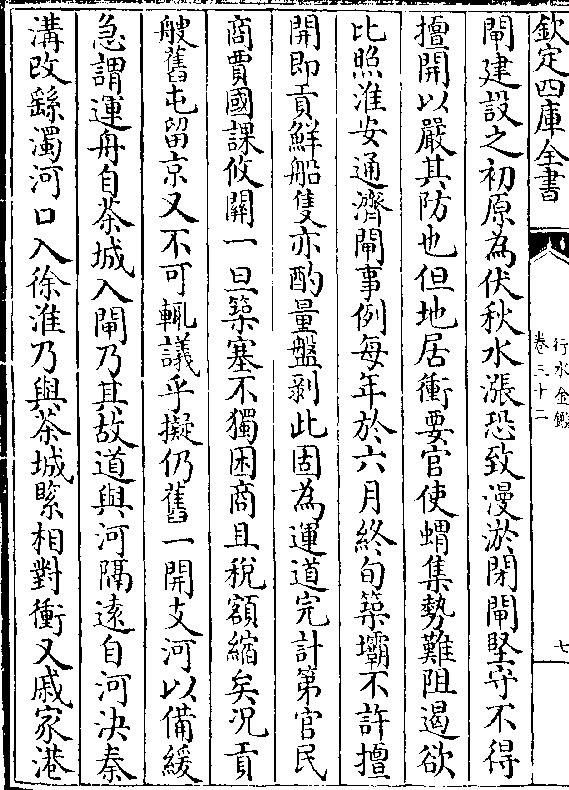 欽定四庫全書
行水金鑑
卷三十二
七
閘建設之初原為伏秋水漲恐致漫淤閉閘堅守不得
擅開以嚴其防也但地居衝要官使蝟集勢難阻遏欲
比照淮安通濟閘事例每年於六月終旬築壩不許擅
開即貢鮮船隻亦酌量盤剥此固為運道完計第官民
商賈國課攸關一旦築塞不獨困商且税額縮矣况貢
艘舊屯留京又不可輒議乎擬仍舊一開支河以備緩
急謂運舟自茶城入閘乃其故道與河隔逺自河決秦
溝改繇濁河口入徐淮乃與茶城繄相對衝又戚家港